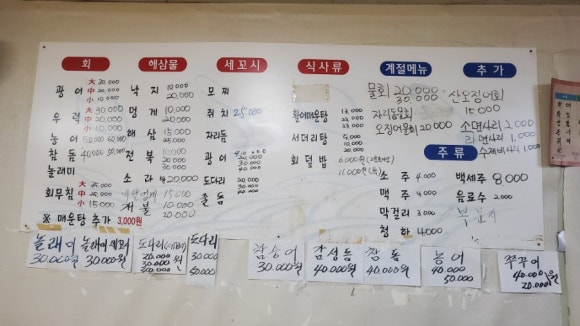 회
광어 大 30,000
中 20,000
小 10,000
우럭 大 30,000
中 20,000
小 10,000
농어 50,000
참돔 50,000
놀래미
회무침 大 25,000
中
小 15,000
※ 매운탕 추가 3,000원
해삼물
낙지 10,000
20,000
멍게 10,000
20,000
해삼 15,000
25,000
전복 20,000
소라 20,000
15,000
개불 10,000
20,000
세꼬시
모찌
쥐치 25,000
자리돔
광어 20,000
30,000
40,000
도다리 20,000
30,000
줄돔
식사류
활어매운탕
서더리탕
회덮밥 6,000원
11,000원
계절메뉴
물회 20,000
30,000
자리돔물회
오징어물회 20,000
추가
산오징어회
15,000
소면사리 2,000
라면사리 1,000
수제비사리 1,000
주류
소주 4,000
맥주 4,000
막걸리 3,000
청하 4,000
백세주 8,000
음료수 2,000
놀래미
30,000원
놀래미세꼬시
30,000원
도다리
20,000
30,000원
도다리
30,000
50,000
감숭어
30,000원
감성돔
40,000원
참돔
40,000원
농어
40,000
50,000
쭈꾸미
40,000원
20,000